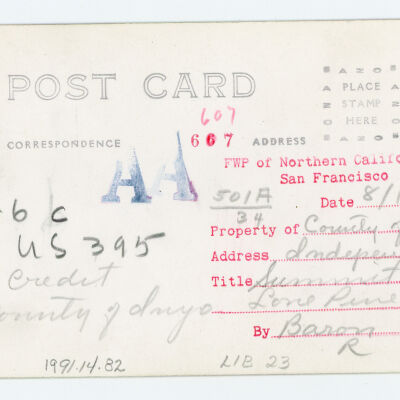 POST CARD
AZO
PLACE
STAMP
HERE
AZO
607
CORRESPONDENCE
607
ADDRESS
AA
FWP of Northern Califo
San Francisco
501A
34
Date 8/1
6 C
US 395
Property of County of
Address Indepen
Credit
Title Summit
County of Inyo
Lone Pine
By Baron
R
1991.14.82
LIB 23